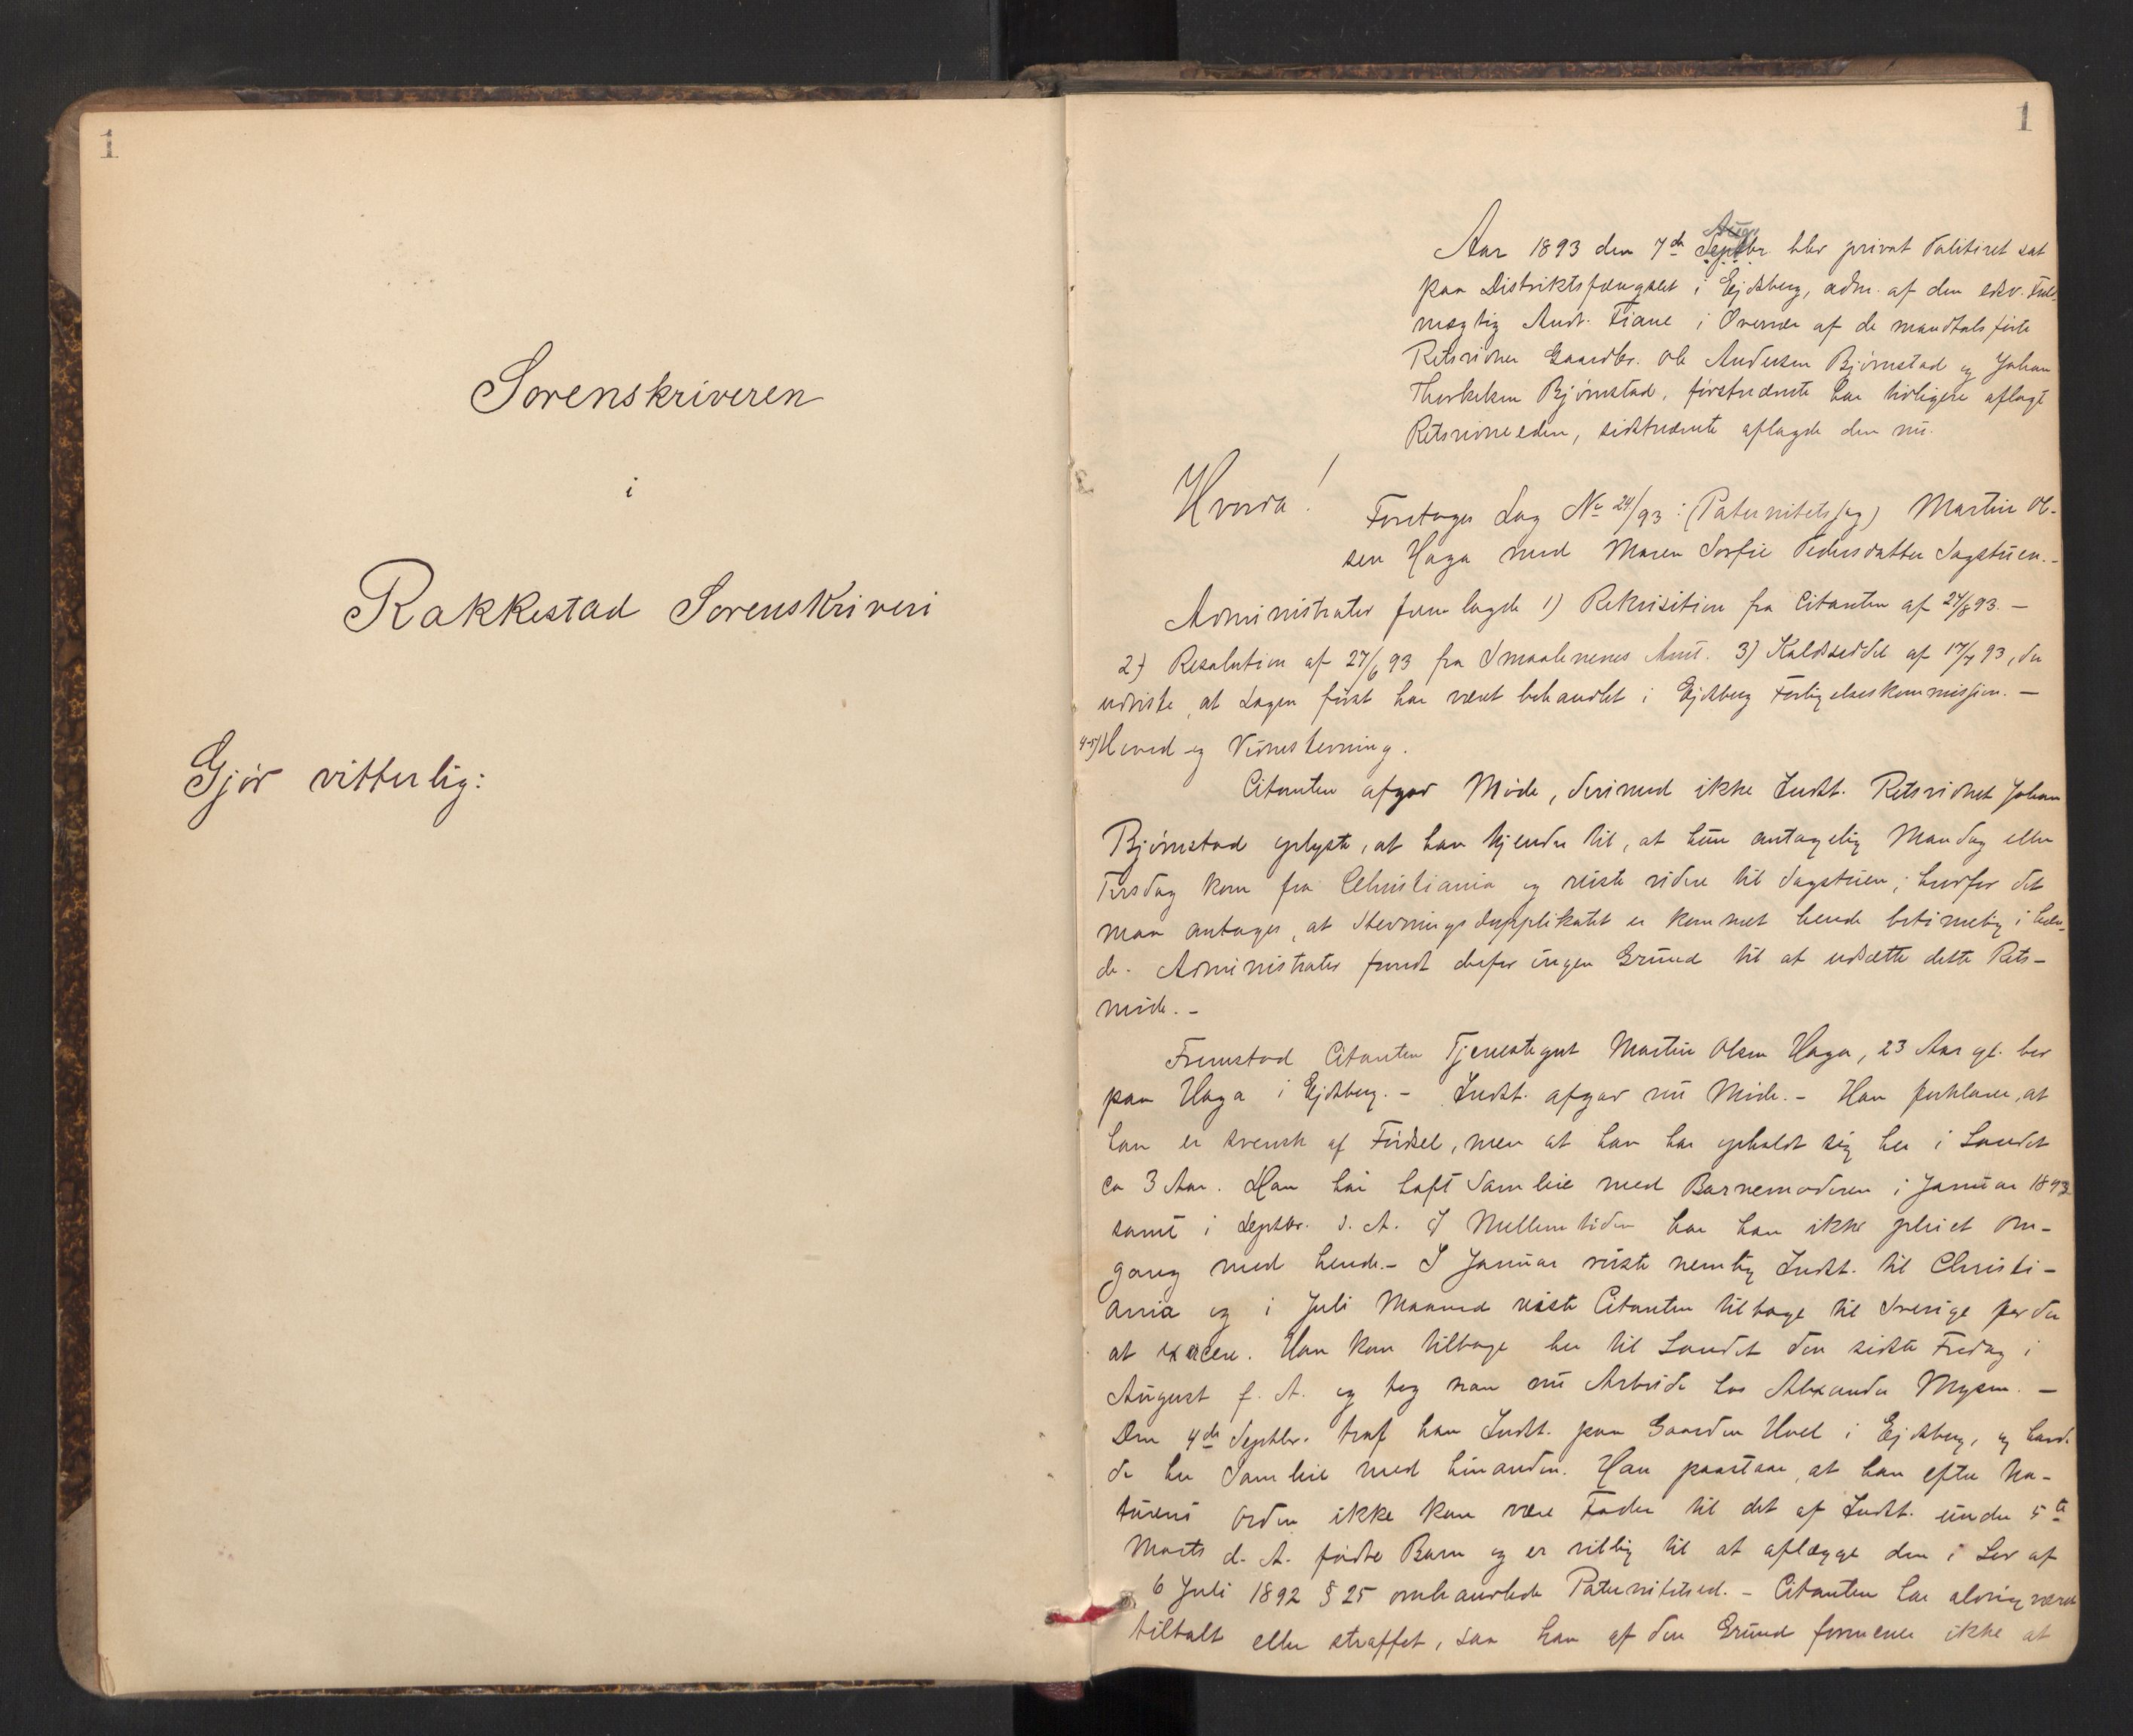 1
Sorenskriveren
i
Rakkestad Sorenskriveri
Gjör vitterlig:
1
Aug
Aar 1893 den 7de Septbr blev privat Politiret sat
paa Distriktsfængslet i Ejdsberg, adm. af den edsv. Fuld-
mægtig Andr. Fiane i Overvær af de mandtalsførte
Retsvidner Gaardbr. Ole Andersen Bjørnstad og Johan
Thorkelsen Bjørnstad, førstnævnte har tidligere aflagt
Retsvidneeden, sidstnævnte aflagde den nu.
Hvorda!
Foretoges Sag No 24/93: (Paternitetssag) Martin Ol-
sen Haga mod Maren Sorfie Pedersdatter Sagstuen.-
Administrator fremlagde 1) Rekvisition fra Citanten af 24/6 93. —
2) Resolution af 27/6 93 fra Smaalenenes Amt. 3) Kaldseddel af 17/7 93, der
udviste, at Sagen først har været behandlet i Ejdsberg Forligelseskommission. —
4-5) Hoved- og Vidnestevning.
Citanten afgav Møde, derimod ikke Indst. Retsvidnet Johan
Bjørnstad oplyste, at han kjender til, at hun antagelig Mandag eller
Tirsdag kom fra Christiania og reiste videre til Sagstuen; hvorfor det
maa antages, at Stevningsdupplikatet er kommet hende betimelig i Hæn-
de. Administrator fandt derfor ingen Grund til at udsætte dette Rets-
møde. -
Fremstod Citanten Tjenestegut Martin Olsen Haga, 23 Aar gl. bor
paa Haga i Ejdsberg. - Indst. afgav nu Møde. - Han forklarer, at
han er svensk af Fødsel, men at han har opholdt sig her i Landet
ca 3 Aar. Han har haft Samleie med Barnemoderen i Januar 1892
samt i Septbr. s. A. I Mellemtiden har han ikke pleiet Om-
gang med hende. - I Januar reiste nemlig Indst. til Christi-
ania og i Juli Maaned reiste Citanten tilbage til Sverige for der
at exacere. Han kom tilbage her til Landet den sidste Fredag i
August f. A. og tog man nu Arbeide hos Alexander Mysen. —
Den 4de Septbr. traf han Indst. paa Gaarden Hoel i Ejdsberg, og havde
de her Samleie med hinanden. Han paastaar, at han efter Na-
turens Orden ikke kan være Fader til det af Indst. under 5te
Marts d. A. fødte Barn og er villig til at aflægge den i Lov af
6 Juli 1892 § 25 omhandlede Paternitetsed. - Citanten har aldrig været
tiltalt eller straffet, saa han af den Grund formener ikke at